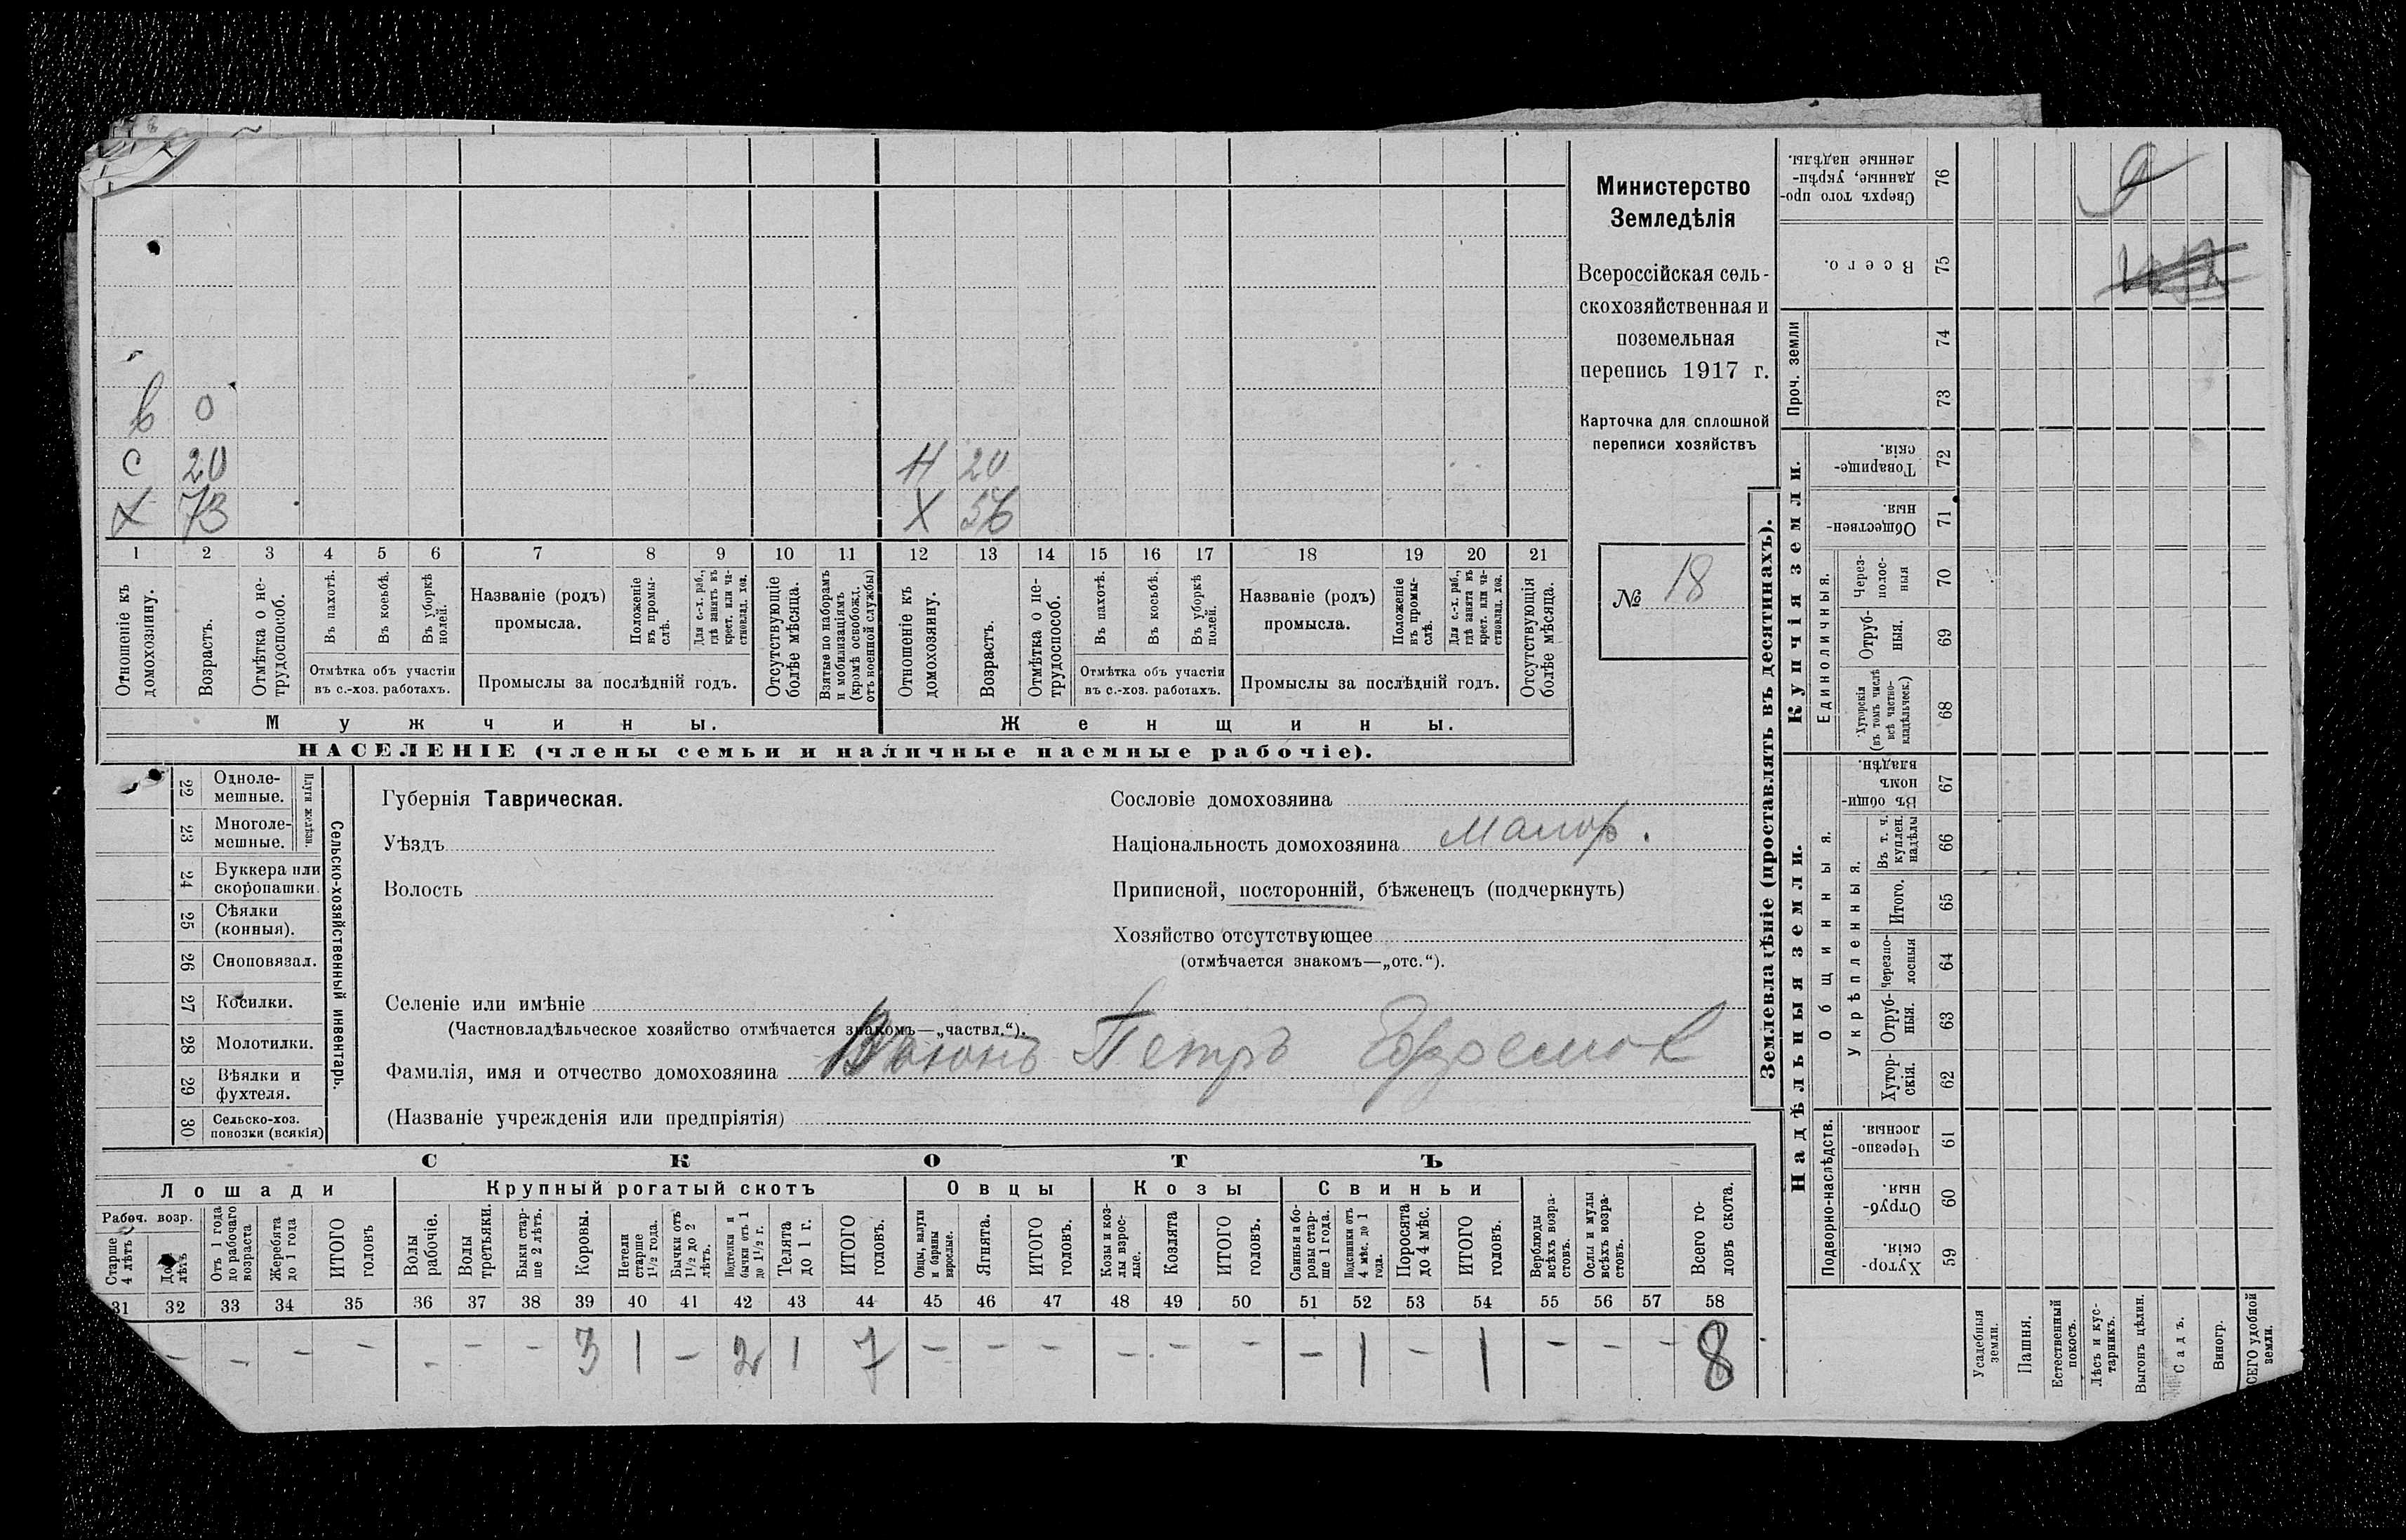 Министерство
Земледѣлія
Всероссійская сель-
скохозяйственная и
поземельная
перепись 1917 г.
Карточка для сплошной
переписи хозяйствъ
№ 18
в 0
с 20 Н 20
Х 73 Х 56
1 2 3 4 5 6 7 8 9 10 11 12 13 14 15 16 17 18 19 20 21
Отношеніе къ домохозяину.
Возрастъ.
Отмѣтка о не-трудоспособ.
Въ пахотѣ.
Въ косьбѣ.
Въ уборкѣ полей.
Отмѣтка объ участіи
въ с.-хоз. работахъ.
Названіе (родъ)
промысла.
Положеніе въ промы-слѣ.
Для с.-х. раб., гдѣ занятъ въ крест. или ча-стновлад. хоз.
Промыслы за послѣдній годъ.
Отсутствующіе болѣе мѣсяца.
Взятые по наборамъ и мобилизаціямъ (кромѣ освобожд. отъ военной службы)
Отношеніе къ домохозяину.
Возрастъ.
Отмѣтка о не-трудоспособ.
Въ пахотѣ.
Въ косьбѣ.
Въ уборкѣ полей.
Отмѣтка объ участіи
въ с.-хоз. работахъ.
Названіе (родъ)
промысла.
Положеніе въ промы-слѣ.
Для с.-х. раб., гдѣ занята въ крест. или ча-стновлад. хоз.
Промыслы за послѣдній годъ.
Отсутствующія болѣе мѣсяца.
Мужчины. Женщины.
НАСЕЛЕНІЕ (члены семьи и наличные наемные рабочіе).
22 Одноле-
мешные.
23 Многоле-
мешные.
Плуги желѣзн.
24 Буккера или
скоропашки.
25 Сѣялки
(конныя).
26 Сноповязал.
27 Косилки.
28 Молотилки.
29 Вѣялки и
фухтеля.
30 Сельско-хоз.
повозки (всякія)
Сельско-хозяйственный инвентарь.
Губернія Таврическая.
Уѣздъ
Волость
Сословіе домохозяина
Національность домохозяина Малор.
Приписной, посторонній, бѣженецъ (подчеркнуть)
Хозяйство отсутствующее
(отмѣчается знакомъ—„отс.“).
Селеніе или имѣніе
(Частновладѣльческое хозяйство отмѣчается знакомъ—„частвл.“).
Фамилія, имя и отчество домохозяина Петръ Ефремов
(Названіе учрежденія или предпріятія)
СКОТЪ
Лошади Крупный рогатый скотъ Овцы Козы Свиньи
Рабоч. возр.
Старше 4 лѣтъ
До лѣтъ
Отъ 1 года до рабочаго возраста
Жеребята до 1 года
ИТОГО головъ
Волы рабочіе.
Волы третьяки.
Быки стар-ше 2 лѣтъ.
Коровы.
Нетели старше 1½ года.
Бычки отъ 1½ до 2 лѣтъ.
Подтелки и бычки отъ 1 до 1½ г.
Телята до 1 г.
ИТОГО головъ.
Овцы, валухи и бараны взрослые.
Ягнята.
ИТОГО головъ.
Козы и коз-лы взрос-лые.
Козлята
ИТОГО головъ.
Свиньи и бо-ровы стар-ше 1 года.
Подсвинки отъ 4 мѣс. до 1 года.
Поросята до 4 мѣс.
ИТОГО головъ.
Верблюды всѣхъ возра-стовъ.
Ослы и мулы всѣхъ возра-стовъ.
Всего го-ловъ скота.
31 32 33 34 35 36 37 38 39 40 41 42 43 44 45 46 47 48 49 50 51 52 53 54 55 56 57 58
– – – – – – 3 1 – 2 1 7 – – – – – – – 1 – 1 – – – 8
Землевладѣніе (проставлять въ десятинахъ).
Сверхъ того про-данные, укрѣп-ленные надѣлы. 76
Всего. 75
Проч. земли
74
73
Купчія земли.
Товарище-скія. 72
Обществен-ныя. 71
Единоличныя.
Через-полос-ныя 70
Отруб-ныя. 69
Хуторскія (въ томъ числѣ всѣ частно-владѣльческ.) 68
Надѣльныя земли.
Общинныя.
Въ общи-номъ владѣн. 67
Укрѣпленныя.
Въ т. ч. куплен. надѣлы 66
Итого. 65
Черезпо-лосныя 64
Отруб-ныя. 63
Хутор-скія. 62
Подворно-наслѣдств.
Черезпо-лосныя. 61
Отруб-ныя. 60
Хутор-скія. 59
Усадебныя земли.
Пашня.
Естественный покосъ.
Лѣсъ и кус-тарникъ.
Выгонъ цѣлин.
Садъ.
Виногр.
СЕГО удобной земли.